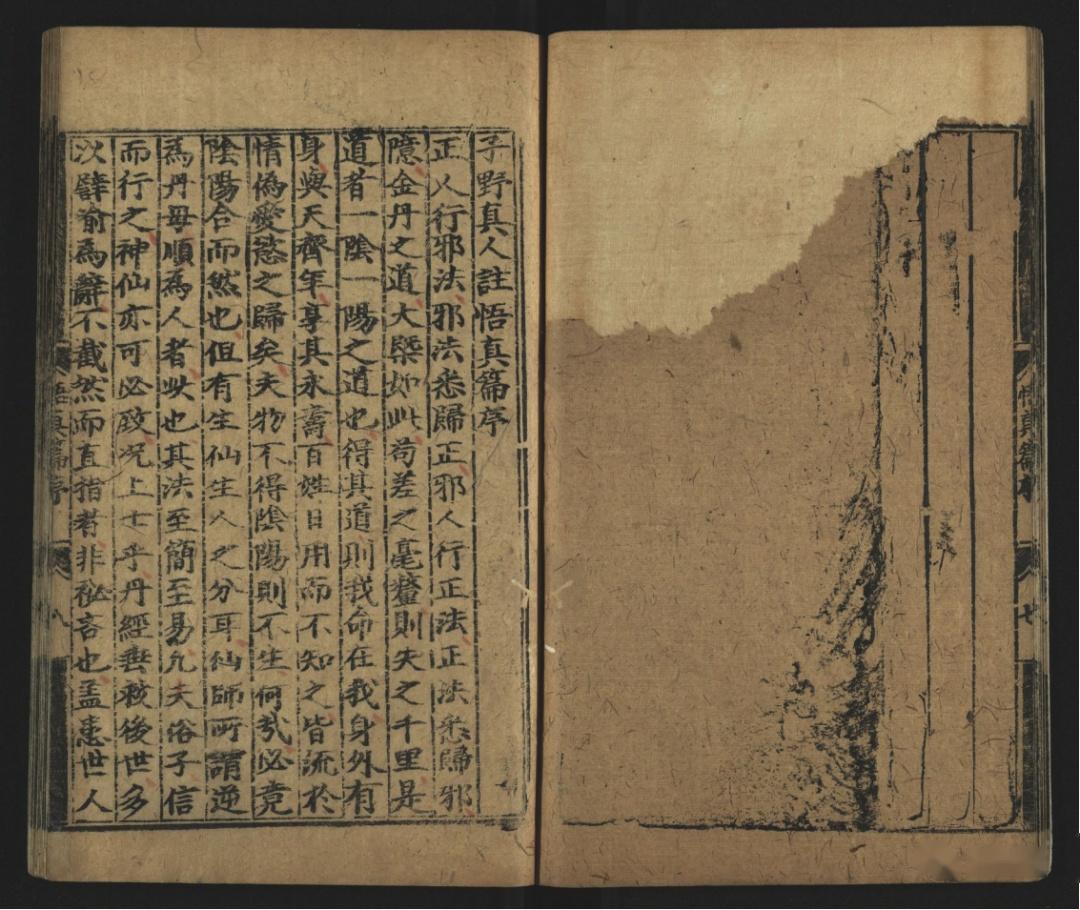 悟真篇序
七
子野真人註悟真篇序
正人行邪法邪法悉歸正邪人行正法正法悉歸邪
噫金丹之道大槩如此苟差之毫釐則失之千里是
道者一陰一陽之道也得其道則我命在我身外有
身與天齊年享其永壽百姓日用而不知之皆流於
情偽愛慾之歸矣夫物不得陰陽則不生何哉必竟
陰陽合而然也但有生仙生人之分耳仙師所謂逆
為丹母順為人者此也其法至簡至易凢夫俗子信
而行之神仙亦可必致况上士乎丹經垂救後世多
次譬喻為辭不截然而直指者非秘吝也盖恚世人
悟真篇序
八